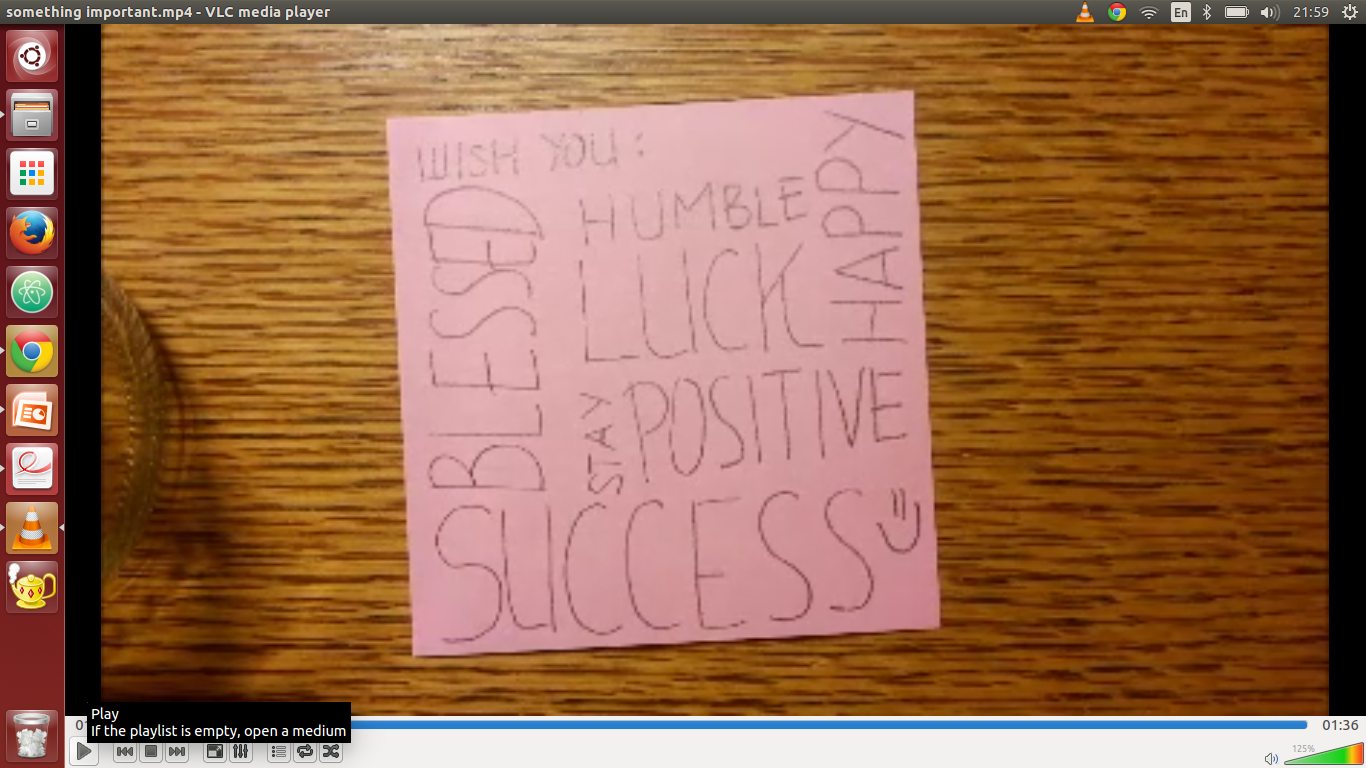 something important.mp4 - VLC media player
En
21:59
WISH YOU:
BLESSED
HUMBLE
HAPPY
LUCK
STAY
POSITIVE
SUCCESS
Play
If the playlist is empty, open a medium
01:36
125%